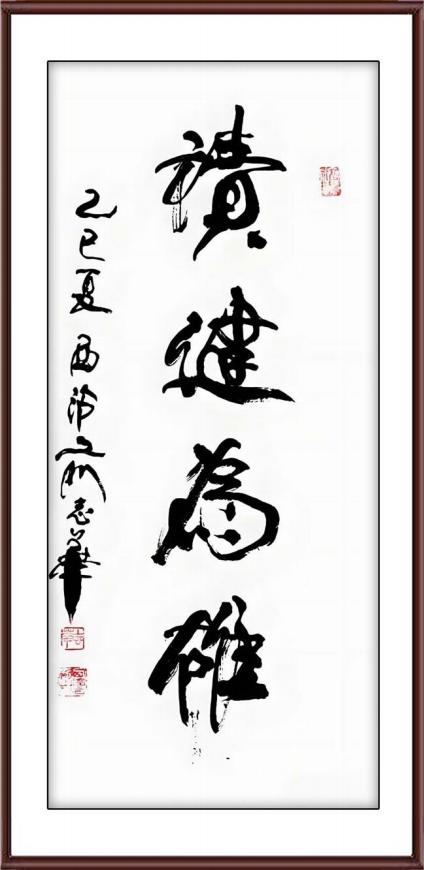 積健為雄
乙巳夏西泠
志華